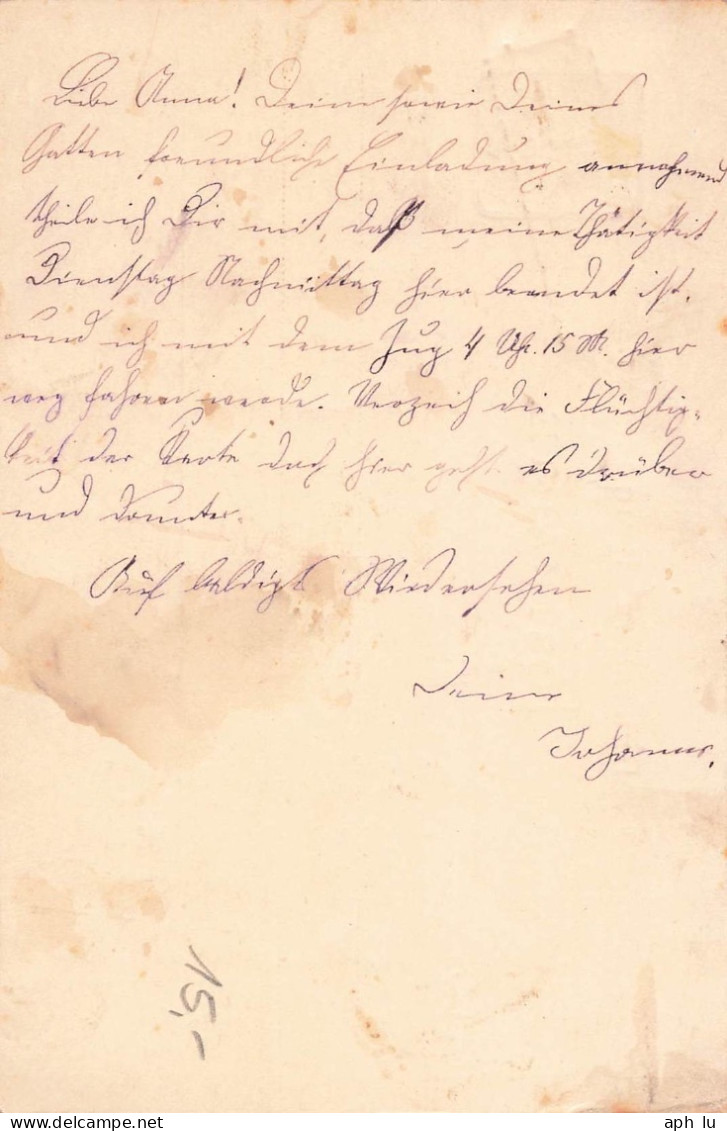 Liebe Anna! Deine sowie Deines
Gatten freundliche Einladung annehmend
theile ich Dir mit, daß meine Thätigkeit
Dienstag Nachmittag hier beendet ist,
und ich mit dem Zug 4 Uhr. 15 M. hier
weg fahren werde. Verzeih die Flüchtig-
keit der Karte doch hier geht es drüber
und drunter.
Auf baldigs Wiedersehen
Deine
Johanna.
15,-
aph lu